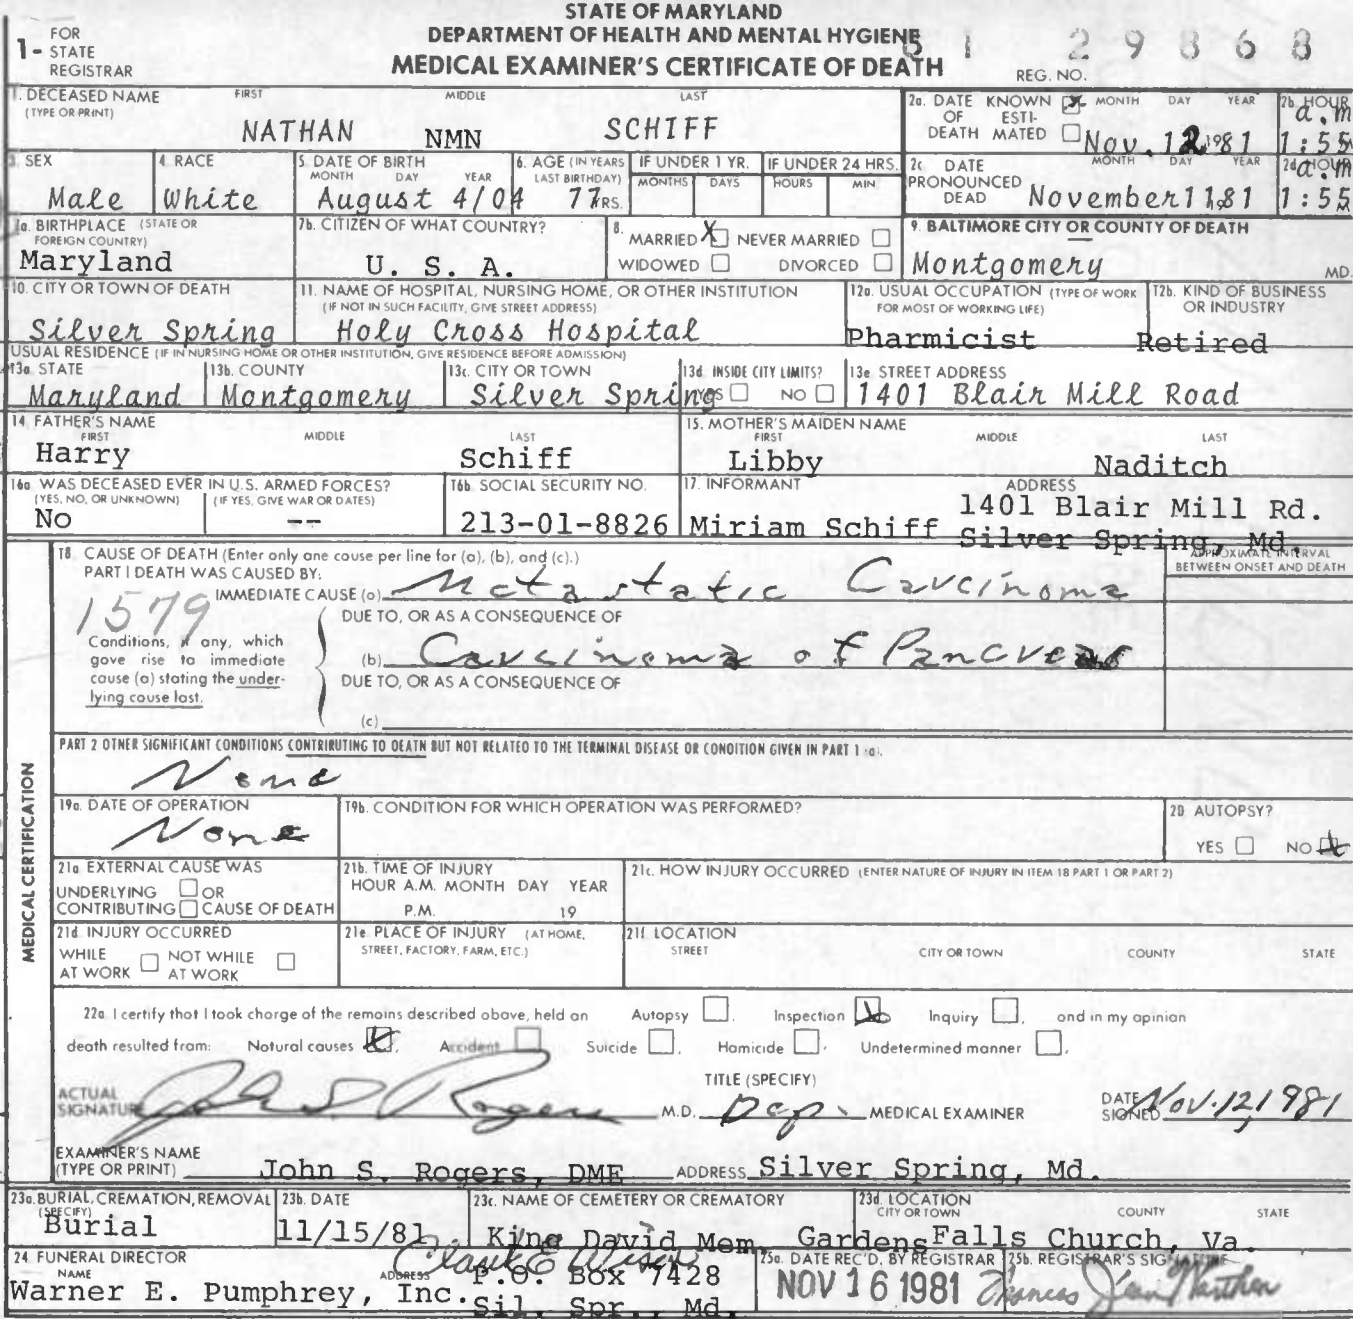 STATE OF MARYLAND
DEPARTMENT OF HEALTH AND MENTAL HYGIENE
MEDICAL EXAMINER'S CERTIFICATE OF DEATH
1- FOR STATE REGISTRAR
REG. NO. 81 29868
1. DECEASED NAME (TYPE OR PRINT) FIRST MIDDLE LAST
NATHAN NMN SCHIFF
2a. DATE OF DEATH KNOWN ESTIMATED MONTH DAY YEAR
Nov. 12 1981
2b HOUR
a.m
1:55
3. SEX
Male
4. RACE
White
5. DATE OF BIRTH MONTH DAY YEAR
August 4/04
6. AGE (IN YEARS LAST BIRTHDAY)
77 YRS.
IF UNDER 1 YR. MONTHS DAYS
IF UNDER 24 HRS. HOURS MIN.
2c. DATE PRONOUNCED DEAD MONTH DAY YEAR
November 11, 81
2d HOUR
a.m
1:55
7a. BIRTHPLACE (STATE OR FOREIGN COUNTRY)
Maryland
7b. CITIZEN OF WHAT COUNTRY?
U. S. A.
8. MARRIED X NEVER MARRIED
WIDOWED DIVORCED
9. BALTIMORE CITY OR COUNTY OF DEATH
Montgomery MD.
10. CITY OR TOWN OF DEATH
Silver Spring
11. NAME OF HOSPITAL, NURSING HOME, OR OTHER INSTITUTION
(IF NOT IN SUCH FACILITY, GIVE STREET ADDRESS)
Holy Cross Hospital
12a. USUAL OCCUPATION (TYPE OF WORK FOR MOST OF WORKING LIFE)
Pharmicist
12b. KIND OF BUSINESS OR INDUSTRY
Retired
USUAL RESIDENCE (IF IN NURSING HOME OR OTHER INSTITUTION, GIVE RESIDENCE BEFORE ADMISSION)
13a STATE
Maryland
13b. COUNTY
Montgomery
13c. CITY OR TOWN
Silver Spring
13d. INSIDE CITY LIMITS?
YES NO
13e. STREET ADDRESS
1401 Blair Mill Road
14. FATHER'S NAME FIRST MIDDLE LAST
Harry Schiff
15. MOTHER'S MAIDEN NAME FIRST MIDDLE LAST
Libby Naditch
16a. WAS DECEASED EVER IN U.S. ARMED FORCES?
(YES, NO, OR UNKNOWN) (IF YES, GIVE WAR OR DATES)
No --
16b. SOCIAL SECURITY NO.
213-01-8826
17. INFORMANT ADDRESS
Miriam Schiff 1401 Blair Mill Rd.
Silver Spring, Md.
MEDICAL CERTIFICATION
18. CAUSE OF DEATH (Enter only one cause per line for (a), (b), and (c).)
APPROXIMATE INTERVAL BETWEEN ONSET AND DEATH
PART I DEATH WAS CAUSED BY:
IMMEDIATE CAUSE (a) Metastatic Carcinoma
1579
DUE TO, OR AS A CONSEQUENCE OF
Conditions, if any, which gave rise to immediate cause (a) stating the underlying cause last.
(b) Carcinoma of Pancreas
DUE TO, OR AS A CONSEQUENCE OF
(c)
PART 2 OTHER SIGNIFICANT CONDITIONS CONTRIBUTING TO DEATH BUT NOT RELATED TO THE TERMINAL DISEASE OR CONDITION GIVEN IN PART 1 (a).
None
19a. DATE OF OPERATION
None
19b. CONDITION FOR WHICH OPERATION WAS PERFORMED?
20 AUTOPSY?
YES NO
21a EXTERNAL CAUSE WAS
UNDERLYING OR
CONTRIBUTING CAUSE OF DEATH
21b. TIME OF INJURY
HOUR A.M. MONTH DAY YEAR
P.M. 19
21c. HOW INJURY OCCURRED (ENTER NATURE OF INJURY IN ITEM 18 PART 1 OR PART 2)
21d INJURY OCCURRED
WHILE AT WORK NOT WHILE AT WORK
21e PLACE OF INJURY (AT HOME, STREET, FACTORY, FARM, ETC.)
21f. LOCATION
STREET CITY OR TOWN COUNTY STATE
22a. I certify that I took charge of the remains described above, held an Autopsy, Inspection, Inquiry, and in my opinion
death resulted from: Natural causes, Accident, Suicide, Homicide, Undetermined manner.
ACTUAL SIGNATURE John S Rogers M.D.
TITLE (SPECIFY) Dep. MEDICAL EXAMINER
DATE SIGNED Nov. 12, 1981
EXAMINER'S NAME (TYPE OR PRINT) John S. Rogers, DME ADDRESS Silver Spring, Md.
23a. BURIAL, CREMATION, REMOVAL (SPECIFY)
Burial
23b. DATE
11/15/81
23c. NAME OF CEMETERY OR CREMATORY
King David Mem. Gardens
23d. LOCATION CITY OR TOWN COUNTY STATE
Falls Church, Va.
24. FUNERAL DIRECTOR
NAME ADDRESS
Warner E. Pumphrey, Inc. P.O. Box 7428
Sil. Spr., Md.
25a. DATE REC'D. BY REGISTRAR
NOV 16 1981
25b. REGISTRAR'S SIGNATURE